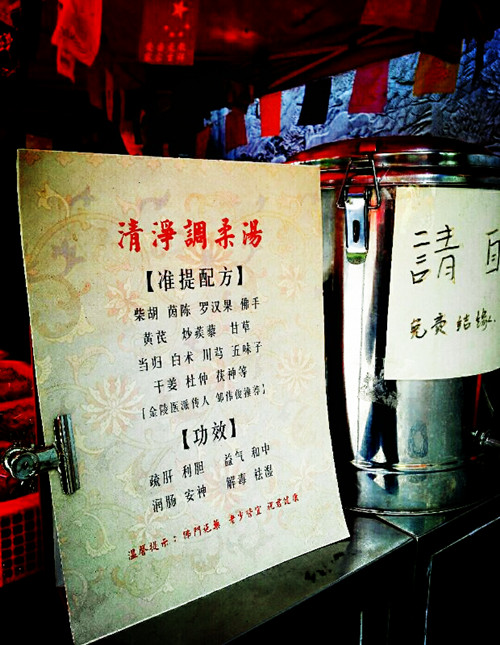 清淨調柔湯
【准提配方】
柴胡 茵陈 罗汉果 佛手
黄芪 炒蒺藜 甘草
当归 白术 川芎 五味子
干姜 杜仲 茯神等
[金陵医派传人 邹伟俊推荐]
【功效】
疏肝 利胆 益气 和中
润肠 安神 解毒 祛湿
温馨提示：佛門施藥 老少皆宜 祝君健康
請
免费结缘